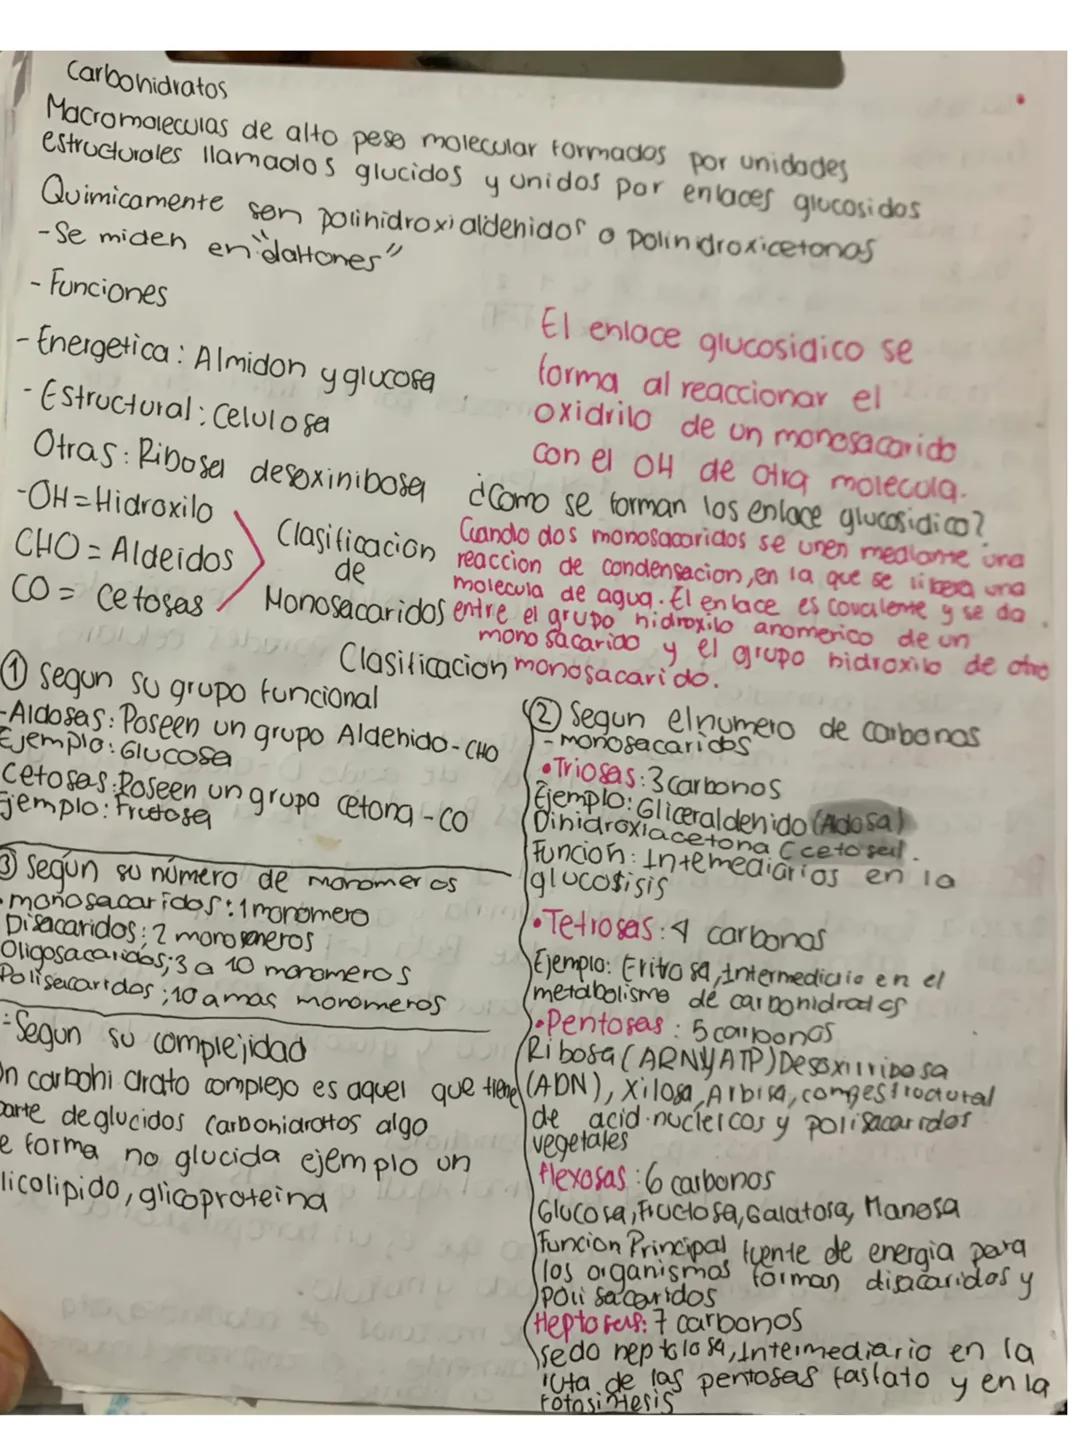 Carbohidratos
Macromoleculas de alto peso molecular formados por unidades
estructurales llamados glucidos y unidos por enlaces glucosidos
Quimicamente son polihidroxialdehidos o polihidroxicetonas
-Se miden en "daltones"
- Funciones
- Energetica: Almidon y glucosa
- Estructural: Celulosa
Otras: Ribosa desoxinibosa
-OH = Hidroxilo
CHO = Aldeidos
CO = Cetosas
Clasificacion
de
Monosacaridos
El enlace glucosidico se
forma al reaccionar el
oxidrilo de un monosacarido
con el OH de otra molecula.
¿Como se forman los enlace glucosidico?
Cuando dos monosacaridos se unen mediante una
reaccion de condensacion, en la que se libera una
molecula de agua. El enlace es covalente y se da
entre el grupo hidroxilo anomerico de un
monosacarido y el grupo hidroxilo de otro
monosacarido.
Clasificacion
① Segun su grupo funcional
-Aldosas: Poseen un grupo Aldehido-CHO
Ejemplo: Glucosa
Cetosas: Poseen un grupo cetona -CO
Ejemplo: Frutosa
③ Según su número de monomeros
• monosacaridos: 1 monomero
Disacaridos: 2 monomeros
Oligosacaridos; 3 a 10 monomeros
Polisacaridos; 10 a mas monomeros
- Segun su complejidad
Un carbohidrato complejo es aquel que tiene
parte de glucidos carbohidratos algo
de forma no glucida ejemplo un
glicolipido, glicoproteina
② Segun el numero de carbonos
- monosacaridos
• Triosas: 3 carbonos
Ejemplo: Gliceraldehido (Adosa)
Dihidroxiacetona (cetosa).
Funcion: Intemediarios en la
glucosisis
• Tetrosas: 4 carbonos
Ejemplo: Eritrosa, Intermediario en el
metabolismo de carbohidratos
• Pentosas: 5 carbonos
Ribosa (ARN y ATP) Desoxirribosa
(ADN), Xilosa, Arbisa, estructural
de acid. nucleicos y polisacaridos
vegetales
Hexosas: 6 carbonos
Glucosa, Fructosa, Galatosa, Manosa
Funcion Principal fuente de energia para
los organismos forman disacaridos y
polisacaridos
Heptosas: 7 carbonos
sedoheptolosa, Intermediario en la
ruta de las pentosas fasfato y en la
fotosintesis